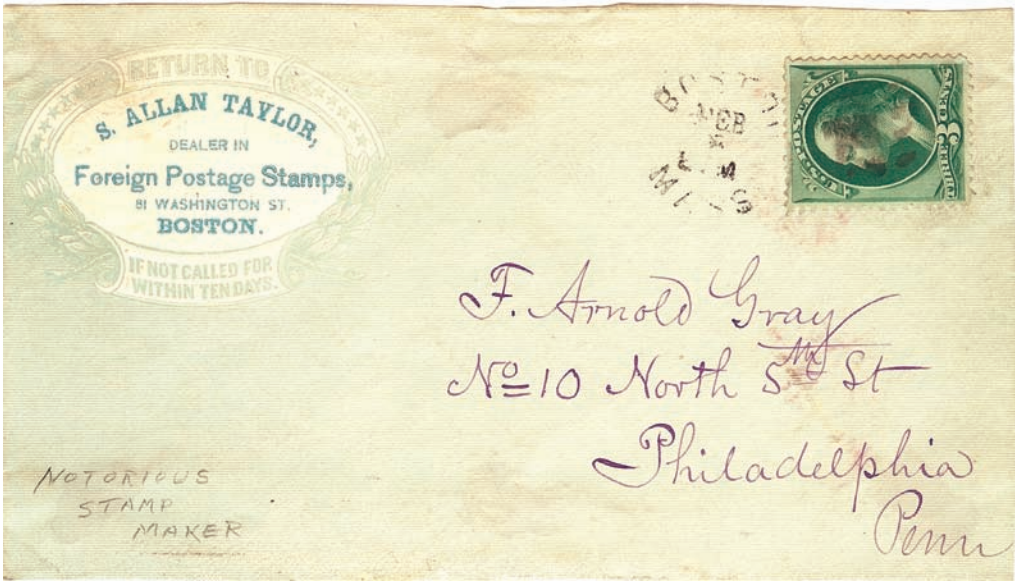 RETURN TO
S. ALLAN TAYLOR,
DEALER IN
Foreign Postage Stamps,
81 WASHINGTON ST.
BOSTON.
IF NOT CALLED FOR
WITHIN TEN DAYS.
BOSTON
FEB
MASS
POSTAGE
3
F. Arnold Gray
No 10 North 5th St
Philadelphia
Penn
NOTORIOUS
STAMP
MAKER